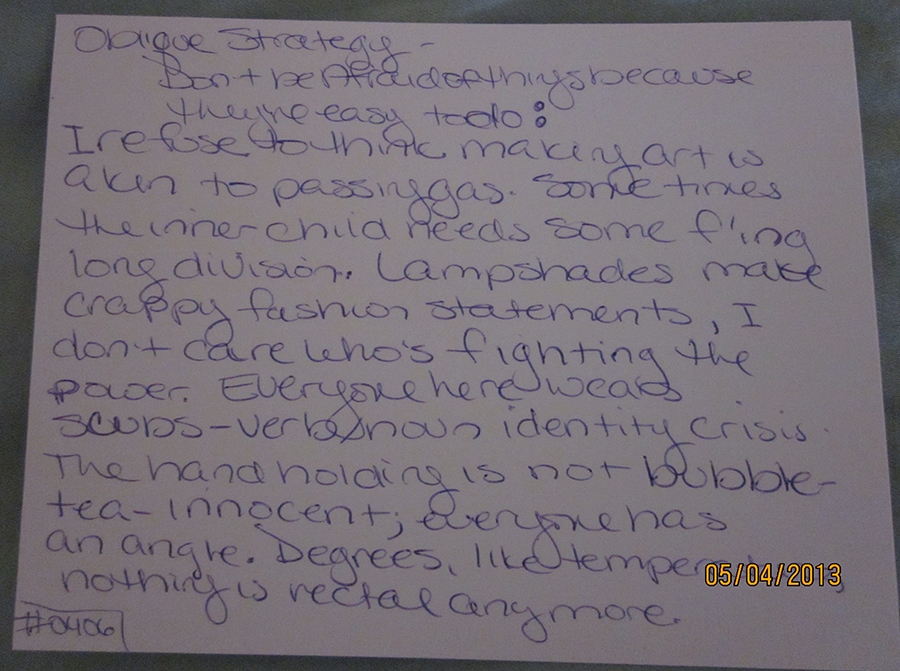 Oblique Strategy -
Don't be Afraid of things because
they're easy to do:
I refuse to think making art is
akin to passing gas. Sometimes
the inner child needs some f'ing
long division. Lampshades make
crappy fashion statements, I
don't care who's fighting the
power. Everyone here wears
scubs-verb/noun identity crisis.
The hand holding is not bubble-
tea-innocent; everyone has
an angle. Degrees, like temper
05/04/2013
nothing is rectal anymore.
#0406